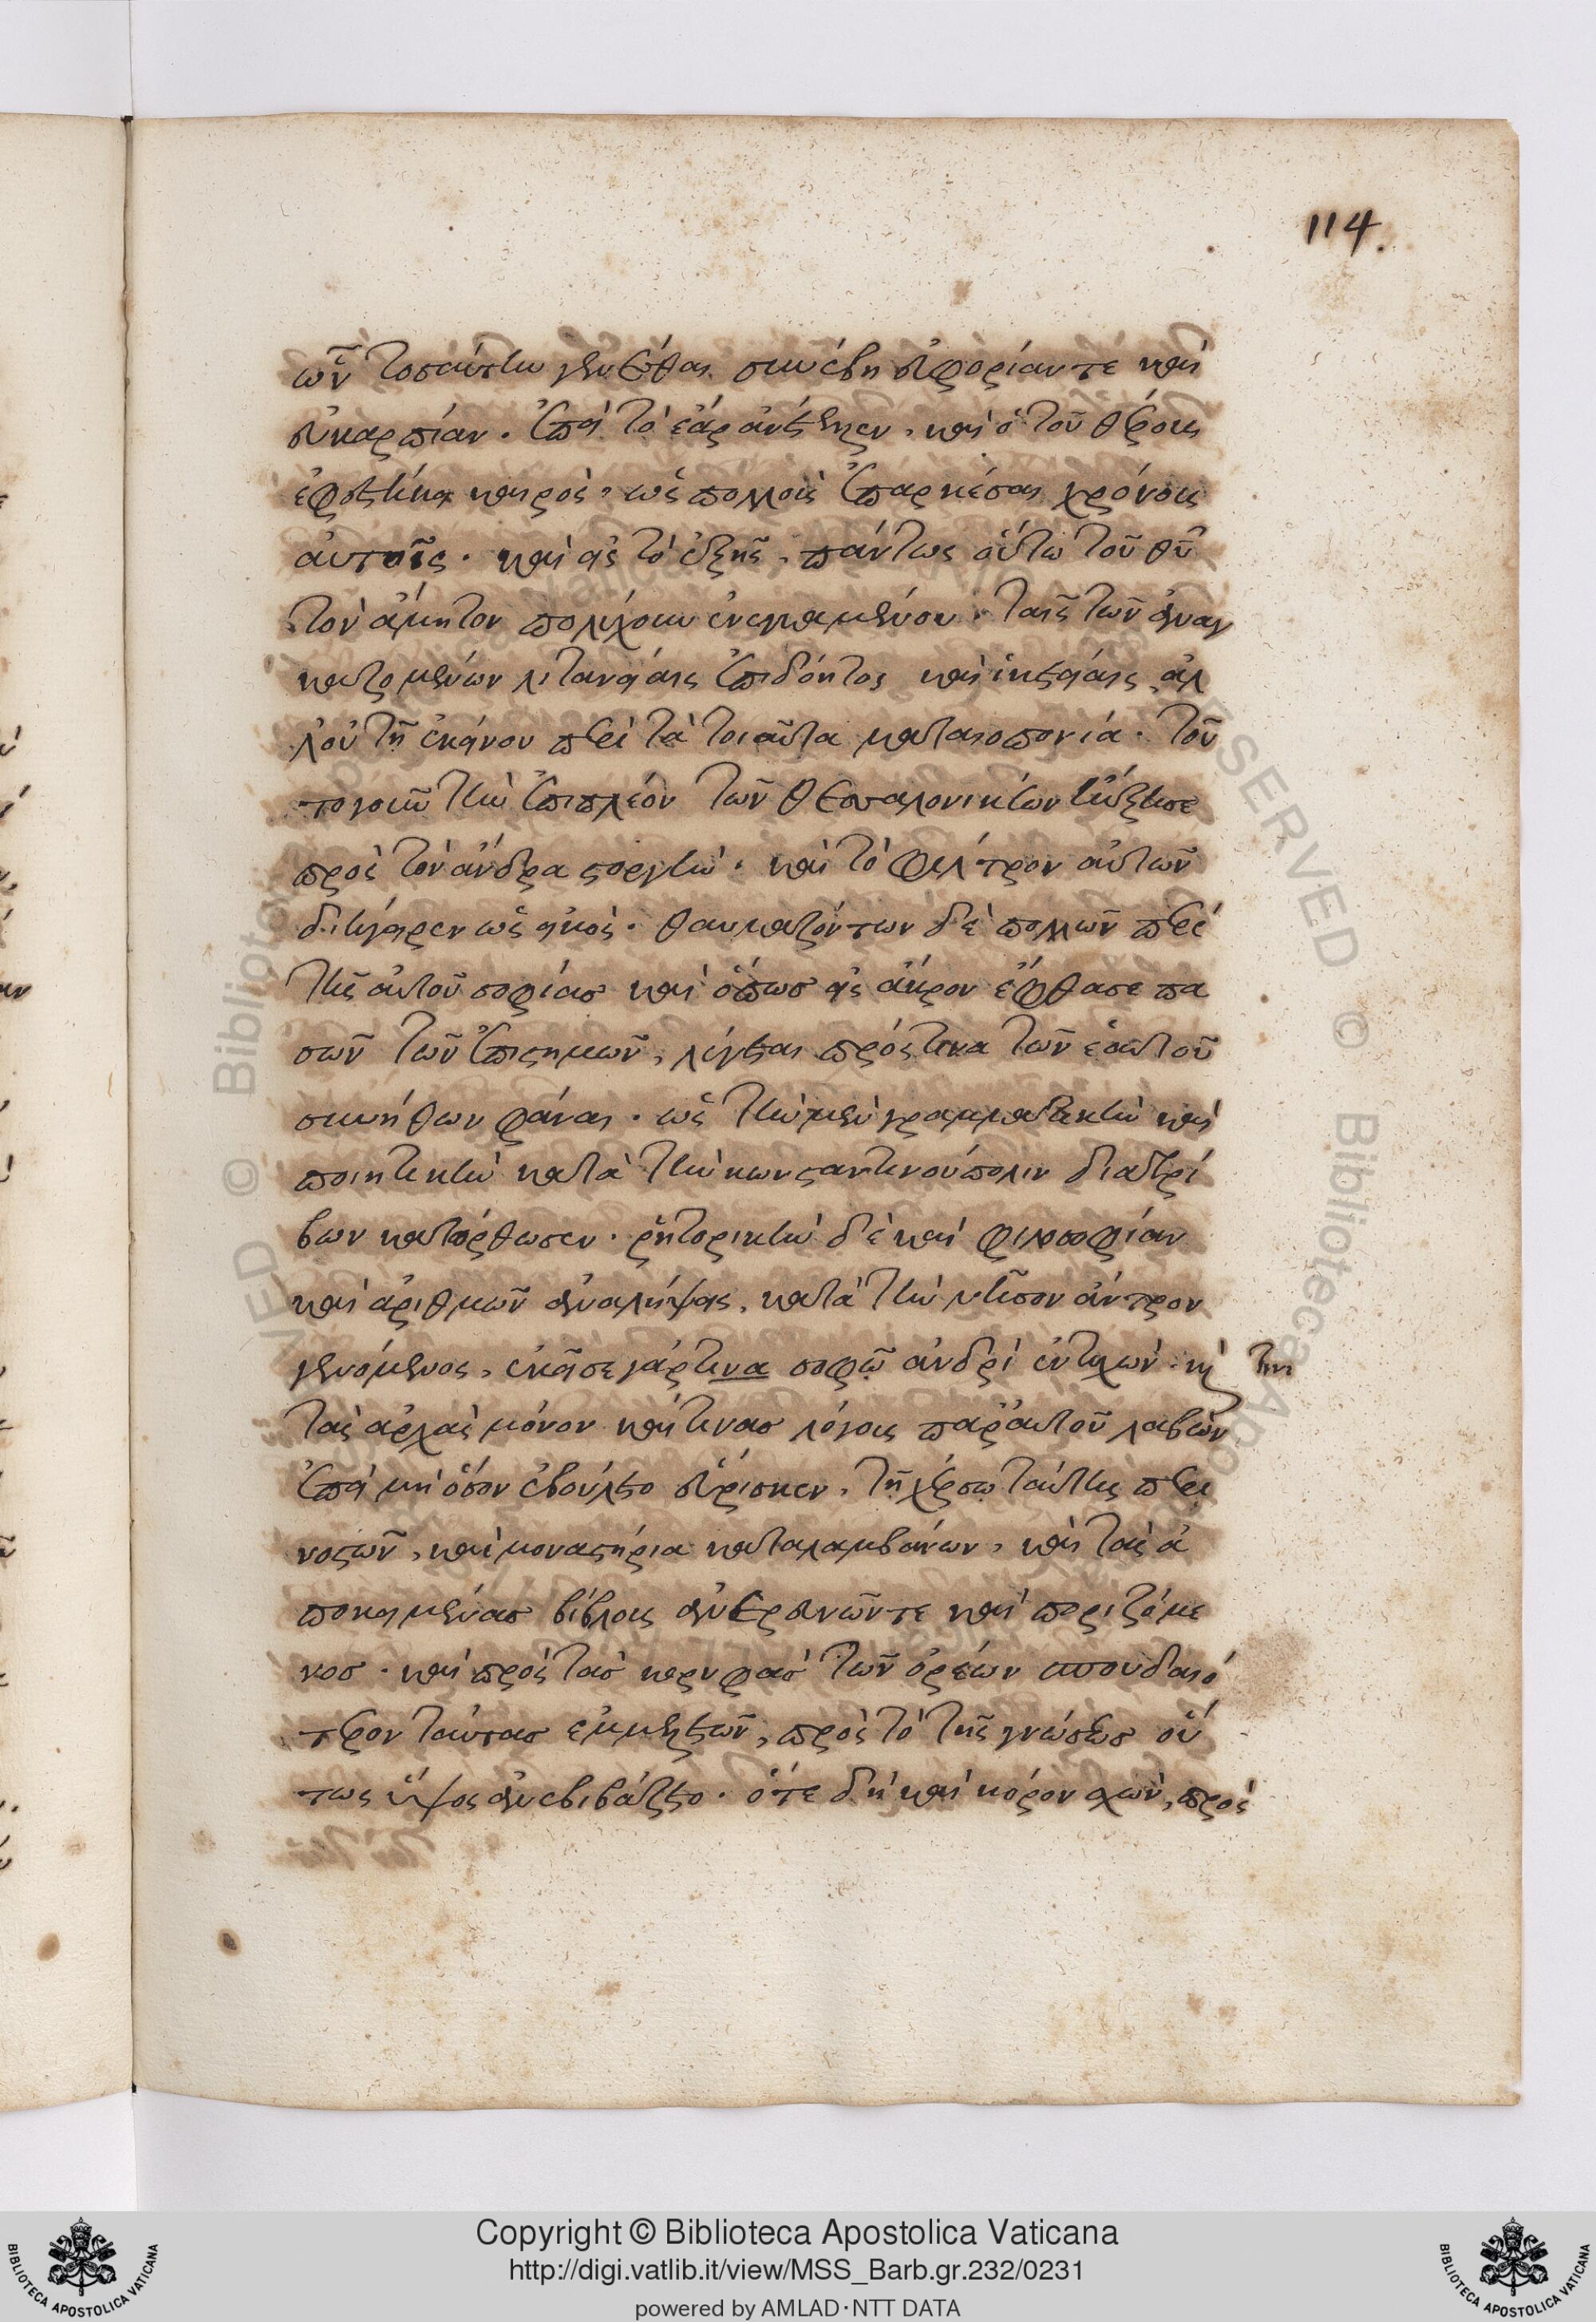 114.
ὧν τοσαύτην γενέσθαι συνέβη εὐφορίαν τε καὶ
εὐκαρπίαν. ἐπεὶ τὸ ἔαρ ἀνέτειλεν, καὶ ὁ τοῦ θέρους
ἐφεστήκει καιρὸς, ὡς πολλοῖς ἐπαρκέσαι χρόνοις
αὐτοῖς. καὶ εἰς τὸ ἑξῆς, πάντως οὕτω τοῦ θῦ
τὸν ἄμητον πολύχουν ἐνεγκαμένου. ταῖς τῶν ἀναγ
καζομένων λιτανείαις ἐπιδόντος καὶ ἱκετείαις ἀλ
λ' οὐ τῇ ἐκείνου περὶ τὰ τοιαῦτα ματαιοπονία. τοῦ
το γοῦν τὴν ἐπιπλέον τῶν θεσσαλονικέων ηὔξησε
πρὸς τὸν ἄνδρα στοργὴν. καὶ τὸ φίλτρον αὐτῶν
διήγειρεν ὡς εἰκὸς. θαυμαζόντων δὲ πολλῶν περὶ
τῆς αὐτοῦ σοφίας καὶ ὅπως εἰς ἄκρον ἔφθασε πα
σῶν τῶν ἐπιστημῶν, λέγεται πρός τινα τῶν ἑαυτοῦ
συνήθων φάναι. ὡς τὴν μὲν γραμματικὴν καὶ
ποιητικὴν κατὰ τὴν κωνσταντινούπολιν διατρί
βων κατώρθωσεν. ῥητορικὴν δὲ καὶ φιλοσοφίαν
καὶ ἀριθμῶν ἀναλήψεις, κατὰ τὴν νῆσον ἄντρον
γενόμενος, ἐκεῖσε γάρ τινα σοφῷ ἀνδρὶ ἐντυχὼν. κὴ τινι
τὰς ἀρχὰς μόνον καί τινας λόγους παρ' αὐτοῦ λαβὼν
ἐπεὶ μὴ ὅσον ἐβούλετο εὕρισκεν, τῇ χέρσῳ ταύτης περι
νοστῶν, καὶ μοναστήρια καταλαμβάνων, καὶ τὰς ἀ
ποκειμένας βίβλους ἀνερευνῶν τε καὶ ποριζόμε
νος. καὶ πρὸς τὰς κορυφὰς τῶν ὀρέων σπουδαιό
τερον ταύτας ἐκμελετῶν, πρὸς τὸ τῆς γνώσεως οὕ
τως ὕψος ἀνεβιβάζετο. ὅτε δὴ καὶ κόρον σχὼν, πρὸς
Copyright © Biblioteca Apostolica Vaticana
http://digi.vatlib.it/view/MSS_Barb.gr.232/0231
powered by AMLAD·NTT DATA